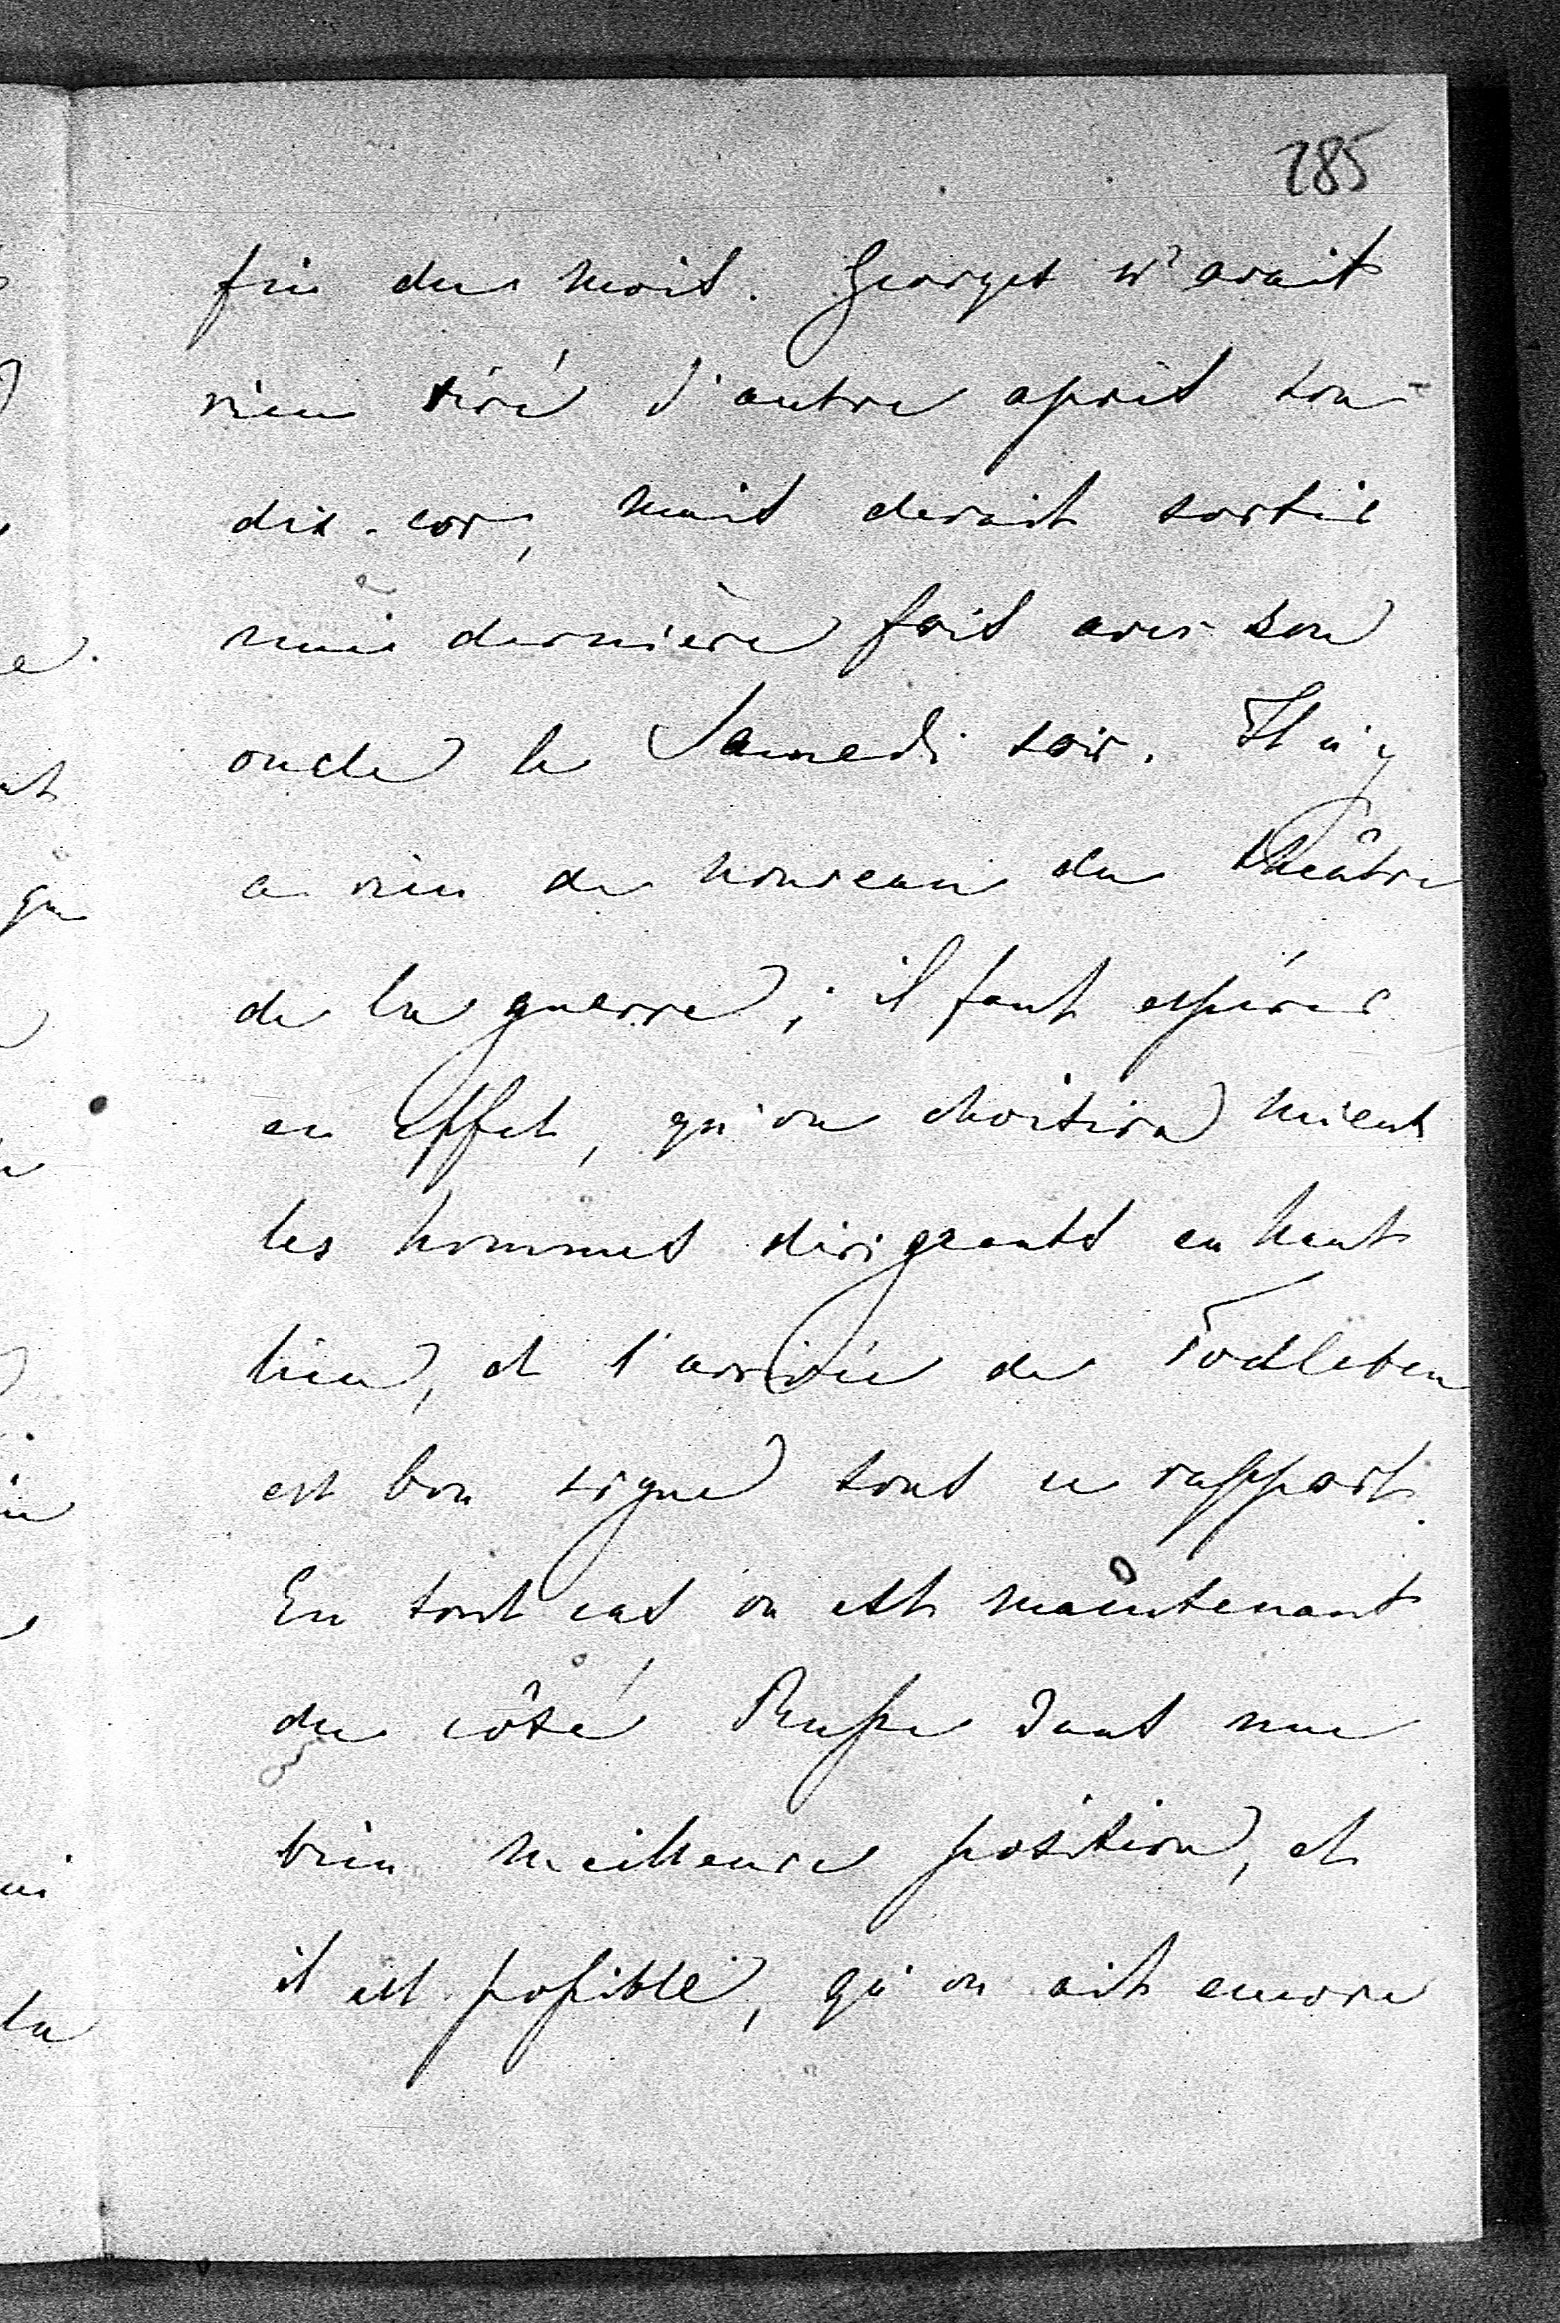 285
fin du mois. Georges n'avait
rien tiré d'autre après son
dix-cors, mais devait sortir
une dernière fois avec son
oncle le Samedi soir. Il n'y
a rien de nouveau du théâtre
de la guerre; il faut espérer
en effet, qu'on choisira mieux
les hommes dirigeants en haut
lieu, et l'arrivée de Todleben
est bon signe sous ce rapport.
En tout cas, on est maintenant
du côté Russe dans une
bien meilleure position, et
il est possible, qu'on ait encore